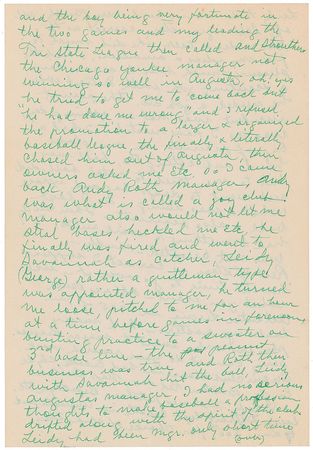 and the boy being very fortunate in
the two games and my leading the
Tri State League then called and
the Chicago yankee manager not
winning so well in Augusta, oh, yes
he tried to get me to come back but
"he had done me wrong" and I refused
the promotion to a larger & organized
baseball league, the finally & literally
chased him out of Augusta, then
owners asked me etc so I came
back, Andy Roth manager, Andy
was what is called a joy club
manager also would not let me
steal bases, heckled me etc, he
finally was fired and went to
Savannah as catcher, Leidy
(George) rather a gentleman type
was appointed manager, he turned
me loose, pitched to me for an hour
at a time before games in forenoons
bunting practice to a sweater on
3rd base line - the peanut
business was true and Roth then
with Savannah hit the ball, Leidy
Augustas manager, I had no serious
thoughts to make baseball a profession
drifted along with the spirit of the club
Leidy had been mgr. only short time
(over)